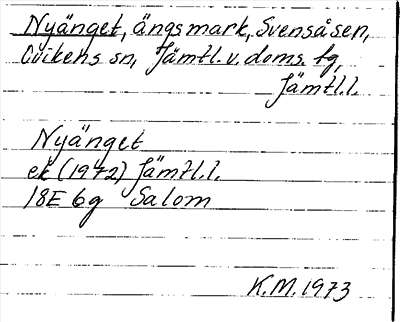 Nyänget, ängsmark, Svensåsen,
Ovikens sn, Jämtl. v. doms. tg,
Jämtl.l.
Nyänget
ek (1972) Jämtl.l.
18E 6g Salom
K.M. 1973